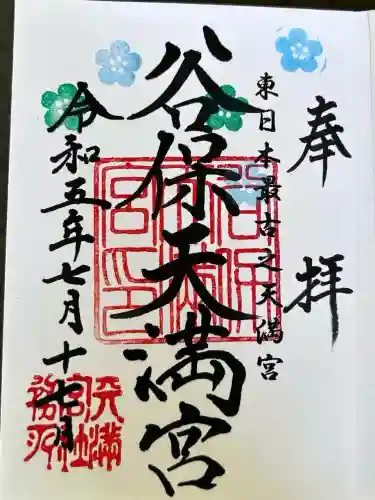 奉拝
東日本最古之天満宮
谷保天満宮
令和五年七月十七月
天満
宮社
務所